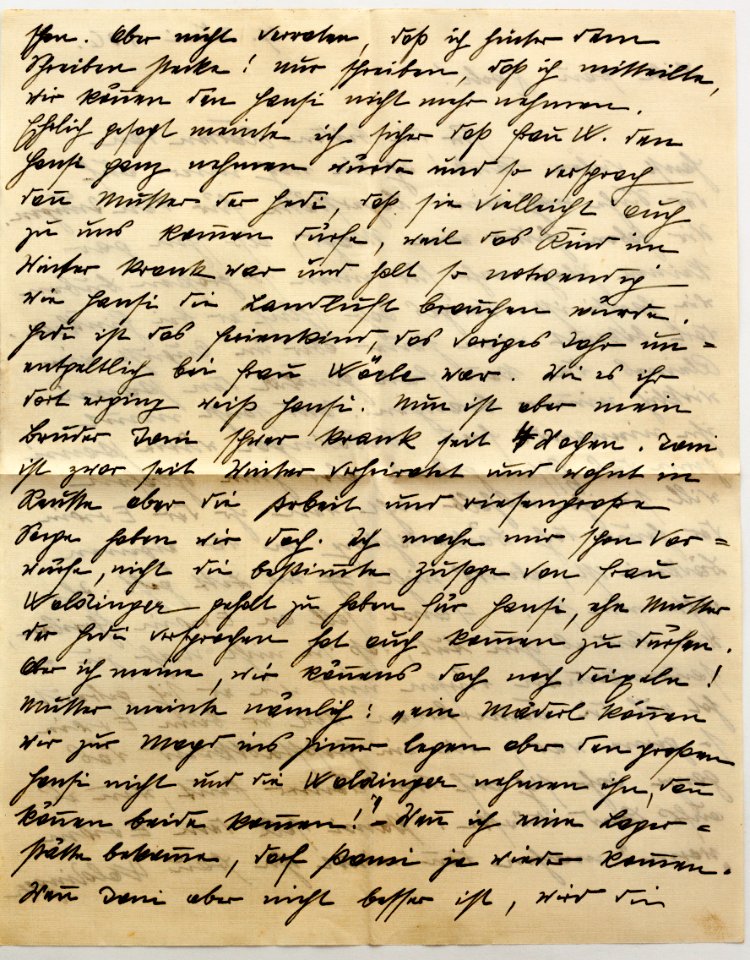 schon. Aber nicht verraten, daß ich hinter dem
Schreiben stecke! nur schreiben, daß ich mitteilte,
wir können den Hansi nicht mehr nehmen.
Ehrlich gesagt meinte ich sicher daß Frau W. den
Hansi ganz nehmen würde und so versprach
dañ Mutter der Hedi, daß sie vielleicht auch
zu uns kom̃en dürfe, weil das Kind im
Winter krank war und halt so notwendig
wie Hansi die Landluft brauchen würde.
Hedi ist das Ferienkind, das voriges Jahr un=
entgeltlich bei Frau Wörle war. Wie es ihr
dort erging weiß Hansi. Nun ist aber mein
Bruder Toni schwer krank seit 4 Wochen. Toni
ist zwar seit Winter verheiratet und wohnt in
Reutte aber die Arbeit und riesengroße
Sorge haben wir doch. Ich mache mir schon Vor=
würfe, nicht die bestim̃te Zusage von Frau
Waldinger gehabt zu haben für Hansi, ehe Mutter
der Hedi versprochen hat auch kom̃en zu dürfen.
Aber ich meine, wir könnens doch noch deixeln!
Mutter meinte nämlich: „ein Mäderl köñen
wir zur Magd ins Zim̃er legen aber den großen
Hansi nicht und die Waldinger nehmen ihn, dañ
köñen beide kom̃en!" – Weñ ich eine Lager=
stätte bekom̃e, darf Hansi ja wieder kom̃en.
Weñ Toni aber nicht besser ist, wird die